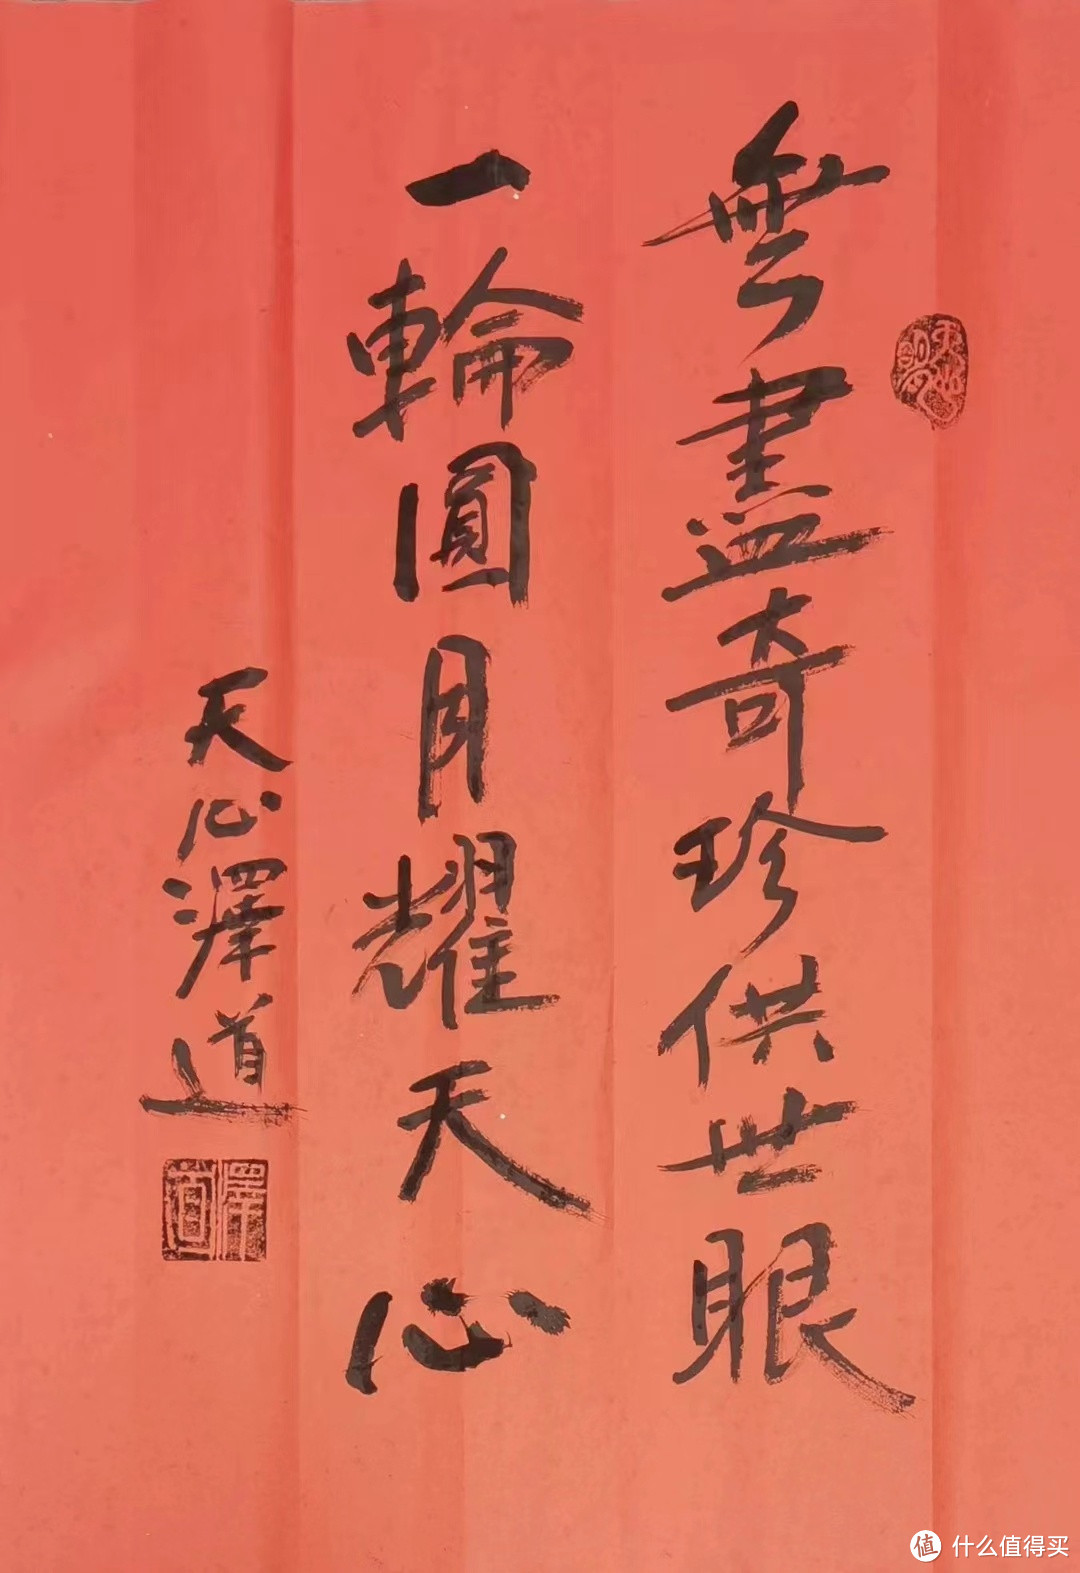 無盡奇珍供世眼
一輪圓月耀天心
天心澤道
澤道
值 什么值得买